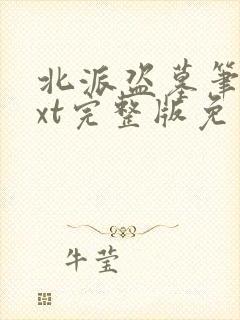 北派盗墓笔
xt完整版免
牛莹